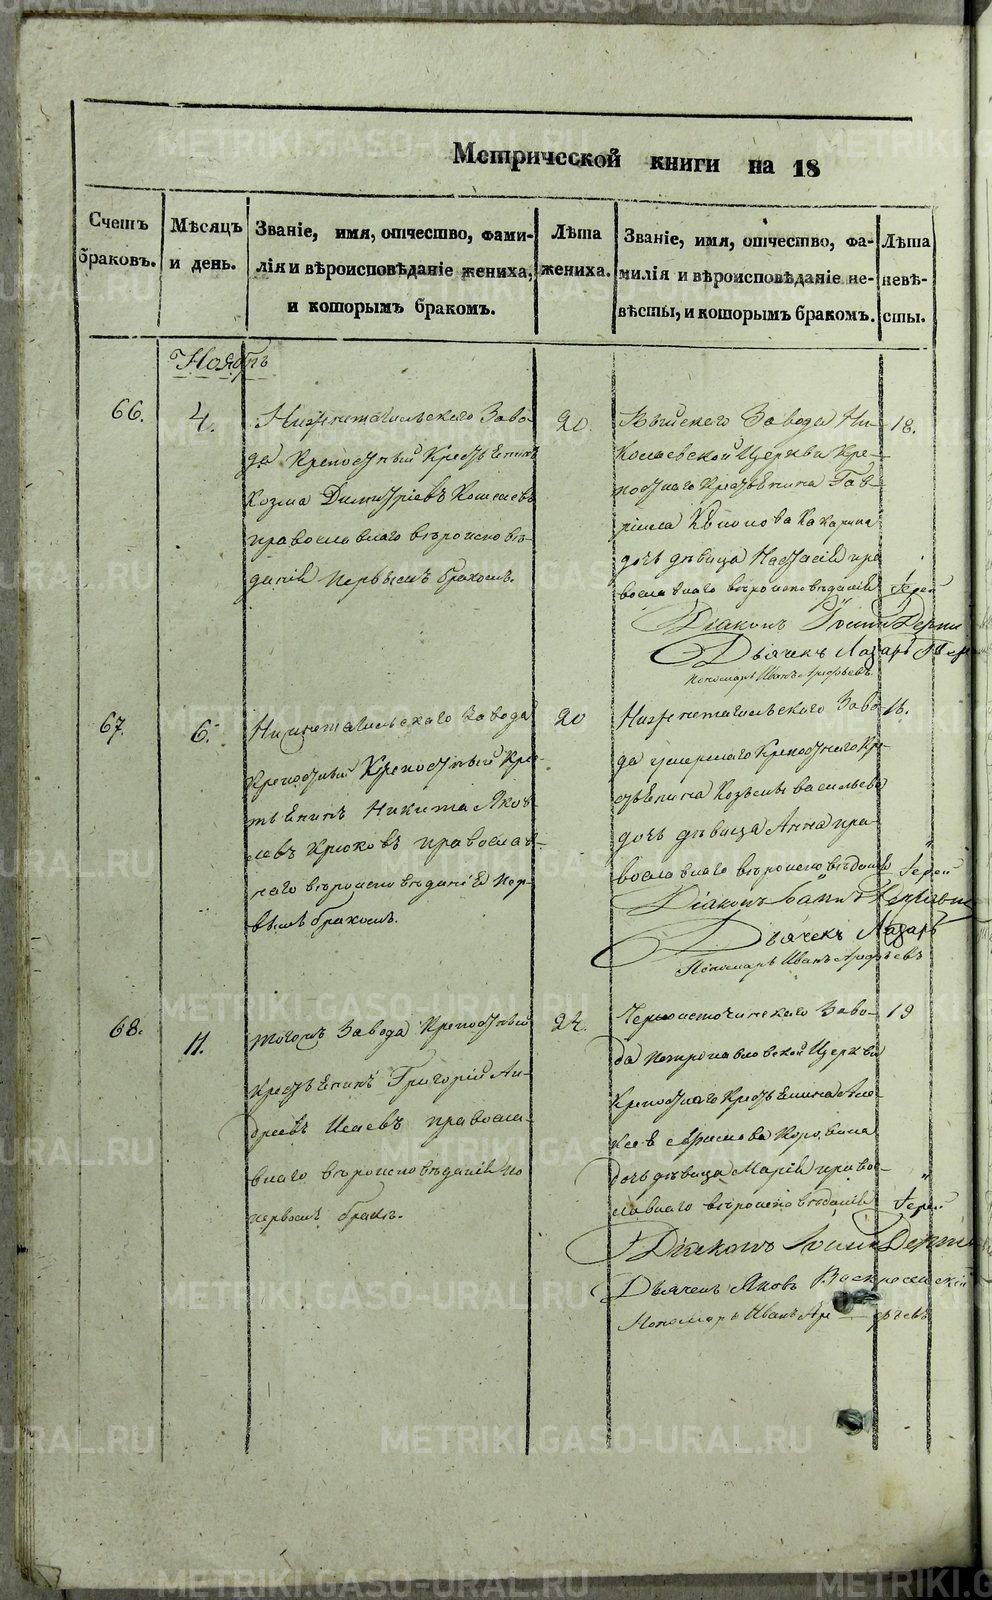 Метрической книги на 18
Счетъ браковъ.
Мѣсяцъ и день.
Званіе, имя, отчество, фами-
лія и вѣроисповѣданіе жениха,
и которымъ бракомъ.
Лѣта
жениха.
Званіе, имя, отчество, фа-
милія и вѣроисповѣданіе не-
вѣсты, и которымъ бракомъ.
Лѣта
невѣ-
сты.
Ноябрь
66.
4.
Нижнетагильскаго Заво-
да Крепостный Крестьянинъ
Козма Димитріевъ Кошелевъ
православнаго вѣроисповѣ-
данія первымъ бракомъ.
20.
Выйскаго Завода Ни-
колаевской Церкви Кре-
постнаго Крестьянина Гав-
ріила
дочь дѣвица Настасія пра
вославнаго вѣроисповѣданія
18.
Іерей
Діаконъ
Дьячекъ Лазарь
Пономарь Иванъ Арефьевъ
67.
6.
Нижнетагильскаго Завода
Крепостный Крепостный Кре-
стьянинъ Никита Яков
левъ Крюковъ православ-
наго вѣроисповѣданія пер-
вымъ бракомъ.
20
Нижнетагильскаго Заво
да умершаго Крепостнаго Кре-
стьянина Козьмы Васильева
дочь дѣвица Анна пра-
вославнаго вѣроисповѣданія
18.
Іерей
Діаконъ
Дьячекъ Лазарь
Пономарь Иванъ Арефьевъ
68.
11.
тогожъ Завода Крепостный
Крестьянинъ Григорій Ан-
дреевъ Исаевъ правосла-
внаго вѣроисповѣданія по
первомъ бракѣ.
24.
Черноисточинскаго Заво-
да Петропавловской Церкви
Крепостнаго Крестьянина Але-
ксѣя
дочь дѣвица Марія право-
славнаго вѣроисповѣданія
19
Іерей
Діаконъ
Дьячекъ Яковъ Воскресенской
Пономарь Иванъ Арефьевъ
METRIKI.GASO-URAL.RU